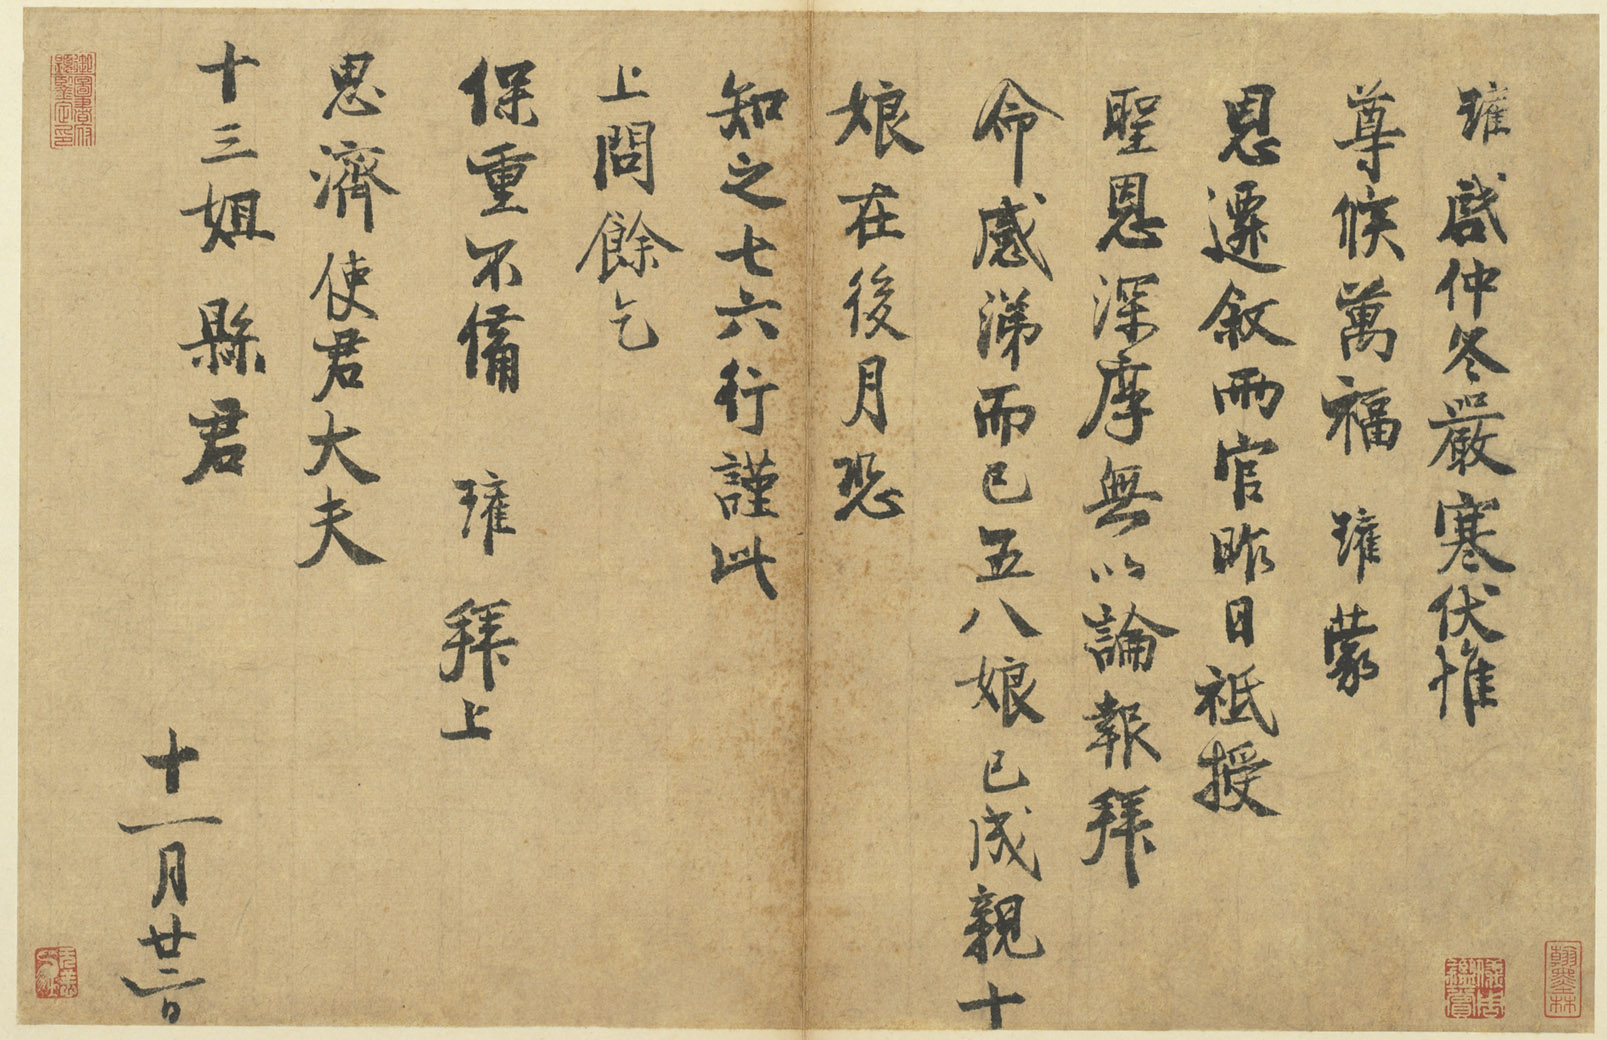 瓘啟仲冬嚴寒伏惟
尊候萬福瓘蒙
恩遷敘兩官昨日祗授
聖恩深厚無以論報拜
命感涕而已五八娘已成親十
娘在後月恐
知之七六行謹此
上問餘乞
保重不備瓘拜上
思濟使君大夫
十三姐縣君
十一月廿二日